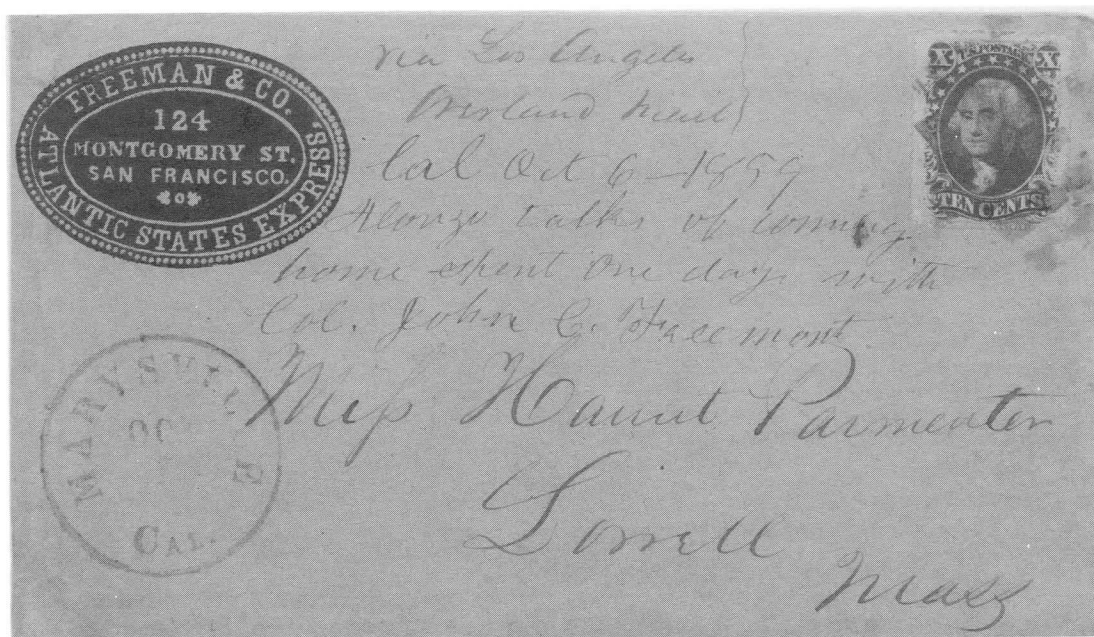 FREEMAN & CO.
124
MONTGOMERY ST.
SAN FRANCISCO.
ATLANTIC STATES EXPRESS.
via Los Angeles
Overland Mail
Cal Oct 6 - 1859
Alonzo talks of coming
home spent one day with
Col. John C. Freemont
X U.S. POSTAGE X
TEN CENTS
Miss Parmenter
Lowell
Mass
MARYSVILLE
OC
CAL.